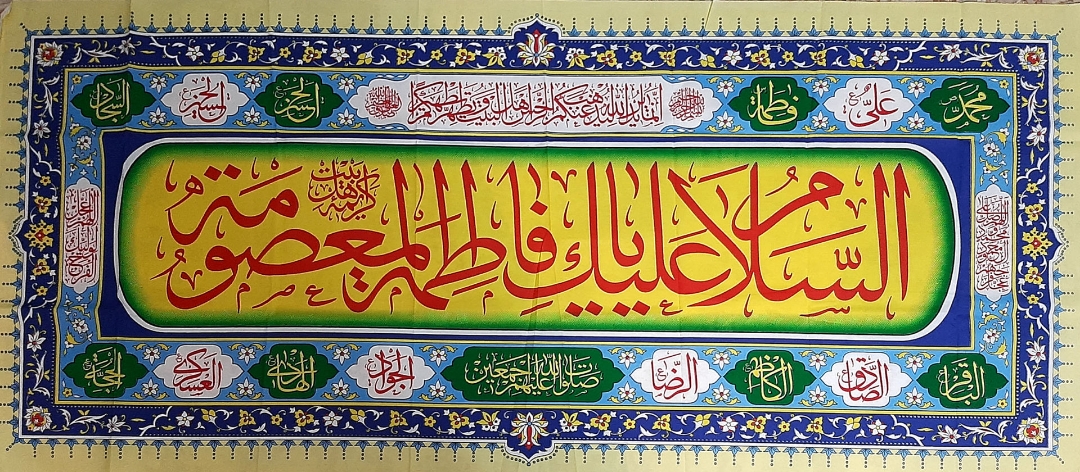 محمد علی فاطمة انما یرید الله لیذهب عنکم الرجس اهل البیت و یطهرکم تطهیرا الحسن الحسین السجاد
السلام علیک یا فاطمة المعصومة
کریمه اهل بیت
الباقر الصادق الکاظم الرضا صلوات الله علیهم اجمعین الجواد الهادی العسکری الحجة
اللهم صل علی محمد و آل محمد و عجل فرجهم